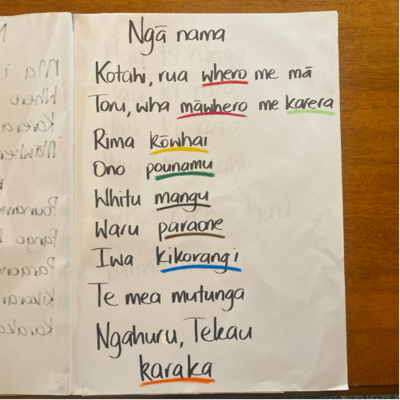 Ngā nama
Kotahi, rua whero me mā
Toru, wha māwhero me karera
Rima kōwhai
Ono pounamu
Whitu mangu
Waru paraone
Iwa kikorangi
Te mea mutunga
Ngahuru, Tekau
karaka